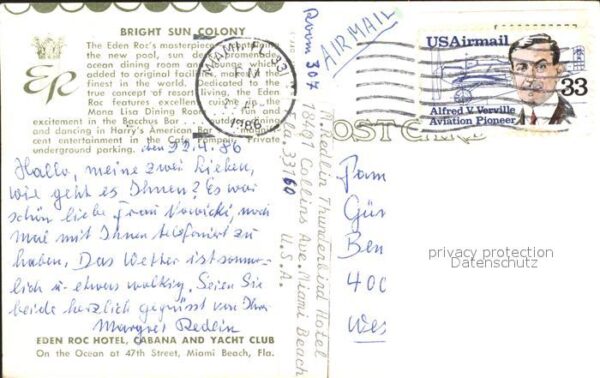 BRIGHT SUN COLONY
The Eden Roc's masterpiece
the new pool, sun deck,
ocean dining room and lounge which
added to original facilities
finest in the world. Dedicated to the
true concept of resort living, the Eden
Roc features excellent cuisine in the
Mona Lisa Dining Room fun and
excitement in the Bacchus Bar dining
and dancing in Harry's American Bar
cent entertainment in the Café Pompeii. Private
underground parking.
ER
MIAMI, FL 331
PM
1986
den 22.4.86
Hallo, meine zwei Lieben,
wie geht es Ihnen? Es war
schön liebe Frau Nowicki, noch
mal mit Ihnen telefoniert zu
haben. Das Wetter ist sommer-
lich u. etwas wolkig. Seien Sie
beide herzlich gegrüsst von Ihrer
Margret Redlin
EDEN ROC HOTEL, CABANA AND YACHT CLUB
On the Ocean at 47th Street, Miami Beach, Fla.
Room 304
M. Redlin Thunderbird Hotel
18401 Collins Ave. Miami Beach
Fla. 33160
U.S.A.
AIRMAIL
POST CARD
USAirmail
33
Alfred V. Verville
Aviation Pioneer
Fam
Gün
Ben
400
Wes
privacy protection
Datenschutz